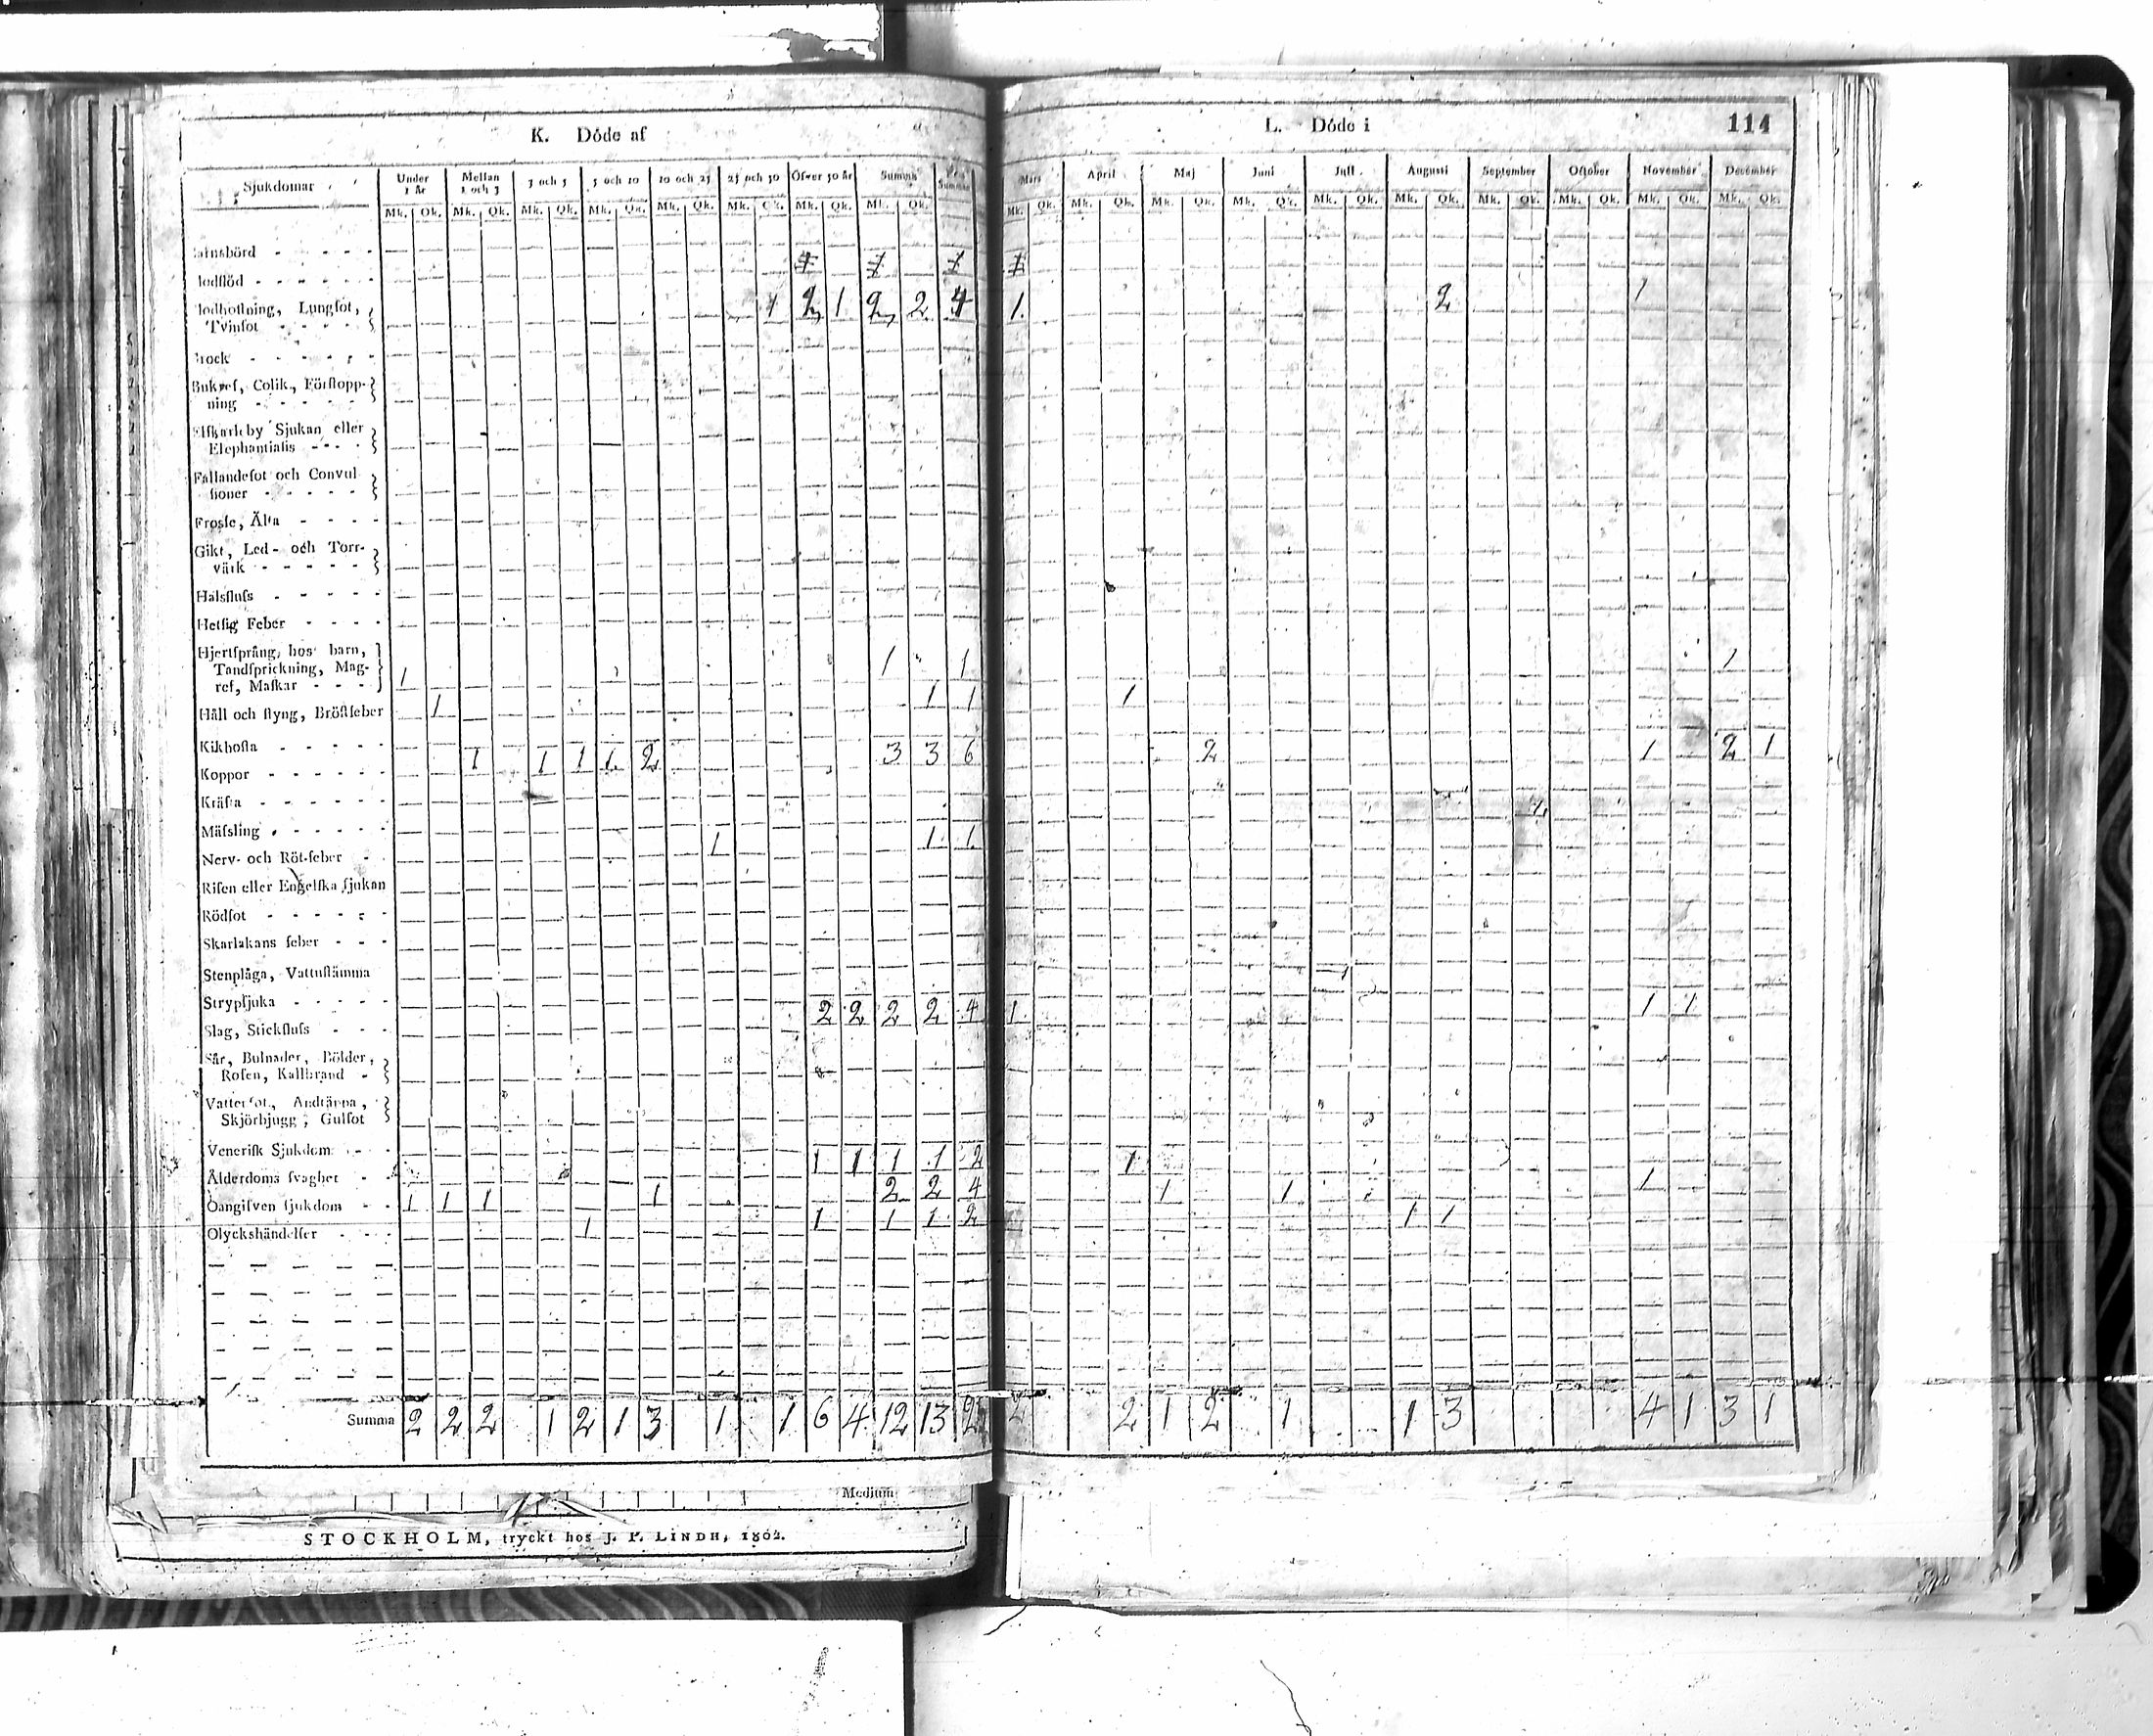 K. Döde af
Sjukdomar Under 1 år Mellan 1 och 3 3 och 5 5 och 10 10 och 25 25 och 50 Öfver 50 år Summa Summa
Mk. Qk. Mk. Qk. Mk. Qk. Mk. Qk. Mk. Qk. Mk. Qk. Mk. Qk. Mk. Qk.
arnsbörd - - - - -
lodflöd - - - - - -
lodhoſtning, Lungſot, 1 2 1 2 2 4
Tvinſot - - - - -
rock - - - - - -
Bukref, Colik, Förſtopp-
ning - - - - -
Elfkarleby Sjukan eller
Elephantiaſis - - -
Fallandeſot och Convul
ſioner - - - - -
Froſſe, Älta - - - -
Gikt, Led- och Torr-
värk - - - - -
Halsfluſs - - - - -
Hetſig Feber - - - -
Hjertſprång, hos barn,
Tandſprickning, Mag- 1 1 1
ref, Maſkar - - -
Håll och ſtyng, Bröſtfeber 1 1 1
Kikhoſta - - - - -
Koppor - - - - - - 1 1 1 1 2 3 3 6
Kräfta - - - - - -
Mäſsling - - - - - -
Nerv- och Röt-feber - - 1 1 1
Riſen eller Engelſka ſjukan
Rödſot - - - - - -
Skarlakans feber - - -
Stenplåga, Vattuſtämma
Strypſjuka - - - - -
Slag, Stickfluſs - - - 2 2 2 2 4
Sår, Bulnader, Bölder,
Roſen, Kallbrand -
Vatterſot, Andtäppa,
Skjörbjugg, Gulſot
Veneriſk Sjukdom - -
Ålderdoms ſvaghet - - 1 1 1 1 2
Oangifven ſjukdom - - 1 1 1 1 2 2 4
Olyckshändelſer - - - 1 1 1 1 2
Summa 2 2 2 1 2 1 3 1 1 6 4 12 13
Medium
STOCKHOLM, tryckt hos J. P. LINDH, 1802.
L. Döde i 114
Mars April Maj Juni Juli Auguſti September Oſtober November December
Mk. Qk. Mk. Qk. Mk. Qk. Mk. Qk. Mk. Qk. Mk. Qk. Mk. Qk. Mk. Qk. Mk. Qk. Mk. Qk.
1 2 1
1
1
2 1 2 1
1 1 1
1
1 1 1
1 1
2 2 1 2 1 1 3 4 1 3 1